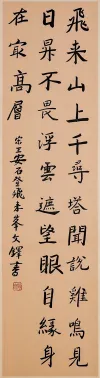 飛来山上千尋塔聞說雞鳴見
日昇不畏浮雲遮望眼自緣身
在冣高層
宋王安石登飛来峯文鐸書